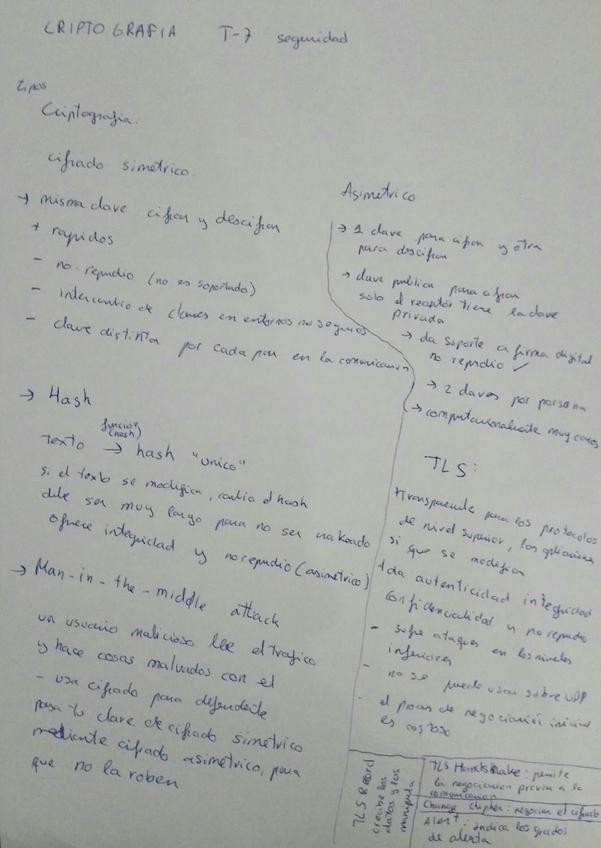 CRIPTOGRAFIA T-7 seguridad
tipos
Criptografia.
cifrado simetrico:
→ misma clave cifran y descifran
+ rapidos
- no-repudio (no es soportado)
- intercambio de claves en entornos no seguros
- clave distinta por cada par en la comunicacion
→ Hash
función
(hash)
texto → hash "unico"
si el texto se modifica, cambia el hash
debe ser muy largo para no ser hakeado
ofrece integridad y no repudio (asimetrico)
→ Man-in-the-middle attack
un usuario malicioso lee el trafico
y hace cosas malvadas con el
- usa cifrado para defenderte
pasa tu clave de cifrado simetrico
mediante cifrado asimetrico, para
que no la roben
Asimetrico
→ 1 clave para cifrar y otra
para descifrar
→ clave publica para cifrar
solo el receptor tiene la clave
privada
→ da soporte a firma digital
no repudio ✓
→ 2 claves por persona
→ computacionalmente muy caros
TLS:
+transparente para los protocolos
de nivel superior, las aplicaciones
si que se modifican
+da autenticidad integridad
confidencialidad y no repudio
- sufre ataques en los niveles
inferiores
- no se puede usar sobre UDP
- el proceso de negociación inicial
es costoso
TLS Record
recibe los
datos y los
manipula
TLS Handshake: permite
la negociacion previa a la
comunicacion
Change Cipher: negocian el cifrado
Alert: indica los grados
de alerta